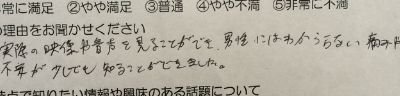 常に満足 ②やや満足 ③普通 ④やや不満 ⑤非常に不満
の理由をお聞かせください
実際の映像や音声を見ることができ、男性にはわからない痛みや
不安が少しでも知ることができました。
時点で知りたい情報や興味のある話題について